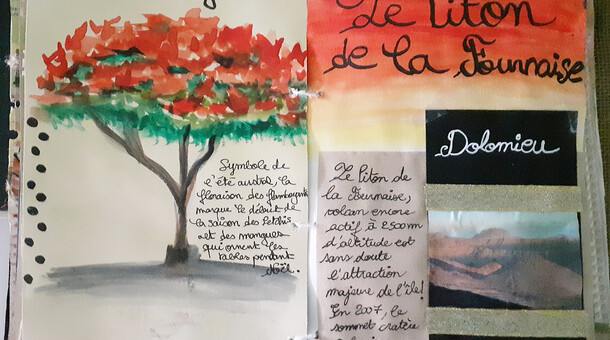 Symbole de
l'été austral, la
floraison des flamboyants
marque le début de
la saison des letchis
et des mangues
qui ornent les
tables pendant
Noël.
Le Piton
de la Fournaise
Le Piton de
la Fournaise,
volcan encore
actif à 2500m
d'altitude est
sans doute
l'attraction
majeure de l'île!
En 2007, le
sommet cratère
Dolomieu